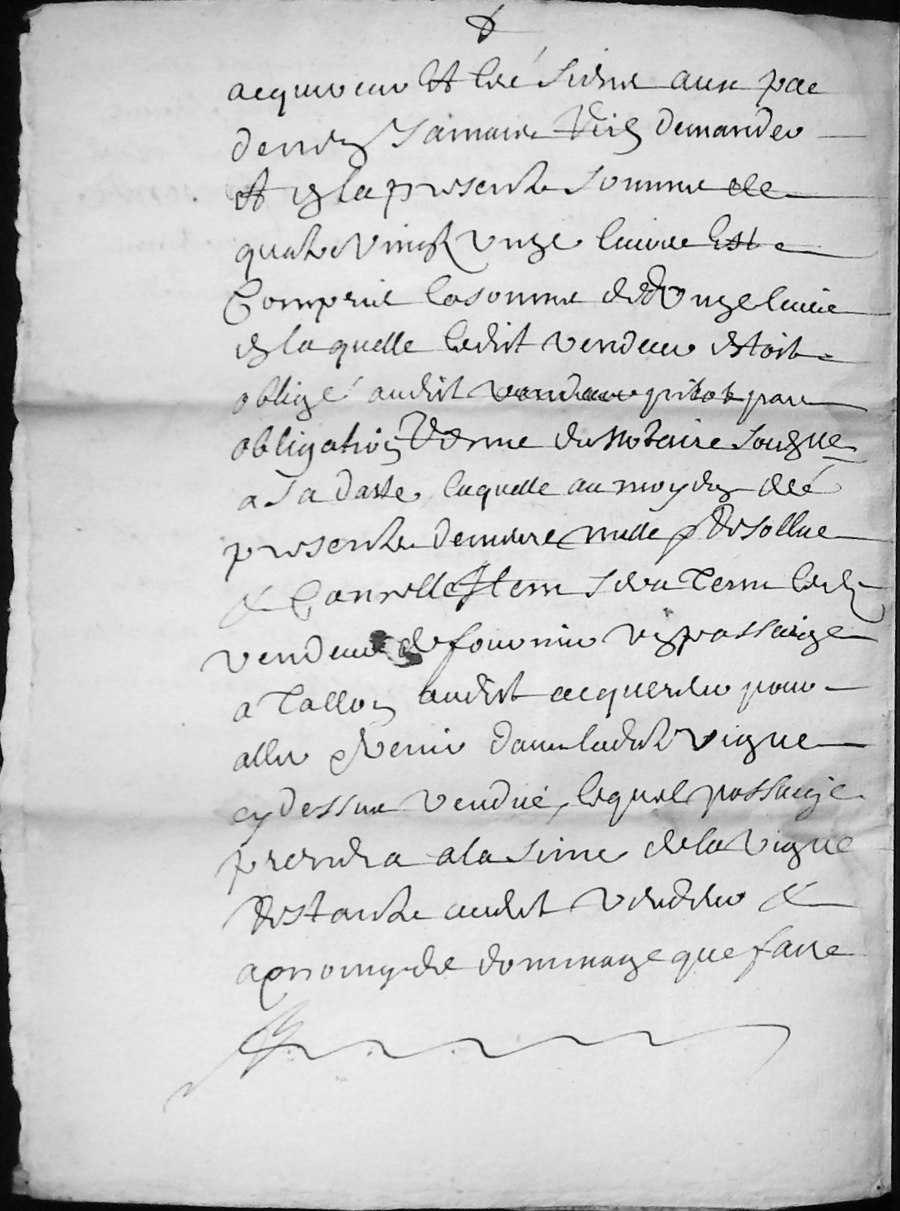 acquereur et les siens aux pac
den rien Jamais rien demander
et en la presente somme de
quatre vingt unze livres est
Comprise la somme de unze livres
en laquelle ledit vendeur estoit
obligé audit vendeur par
obligation du notaire soubzne
a sa datte laquelle au moyen des
presentes demeure nulle et desollue
et Cancellé Item sera Tenu led
vendeur de fournir un passaige
a Tallon audit acquereur pour
aller et venir dans ladite vigne
cy dessus vendue, lequel passaige
prendra a la sime de la vigne
restante audit vendeur et
a moingdre dommaige que faire